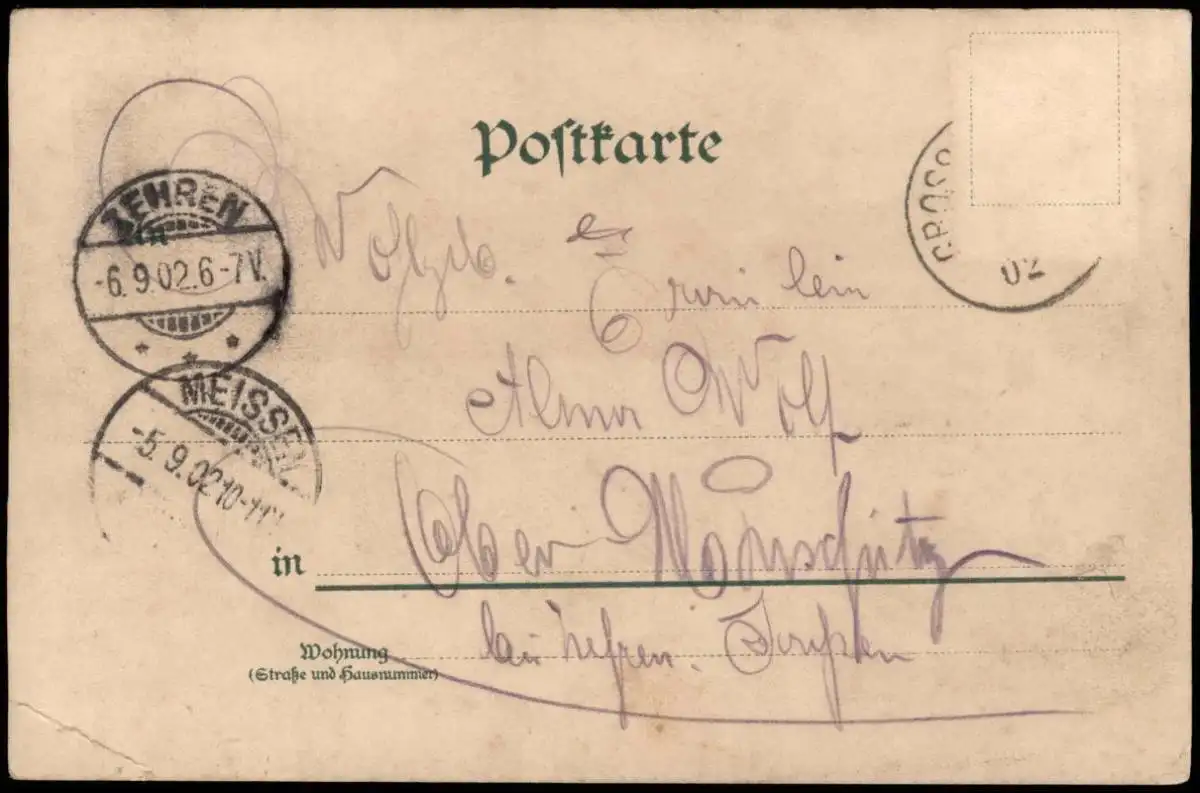 Postkarte
ZEHREN
-6.9.02.6-7V.
MEISSEN
-5.9.02 10-11
GROSS
02
Alma Wolf
Ober
in
bei Zehren. Sachsen
Wohnung
(Straße und Hausnummer)